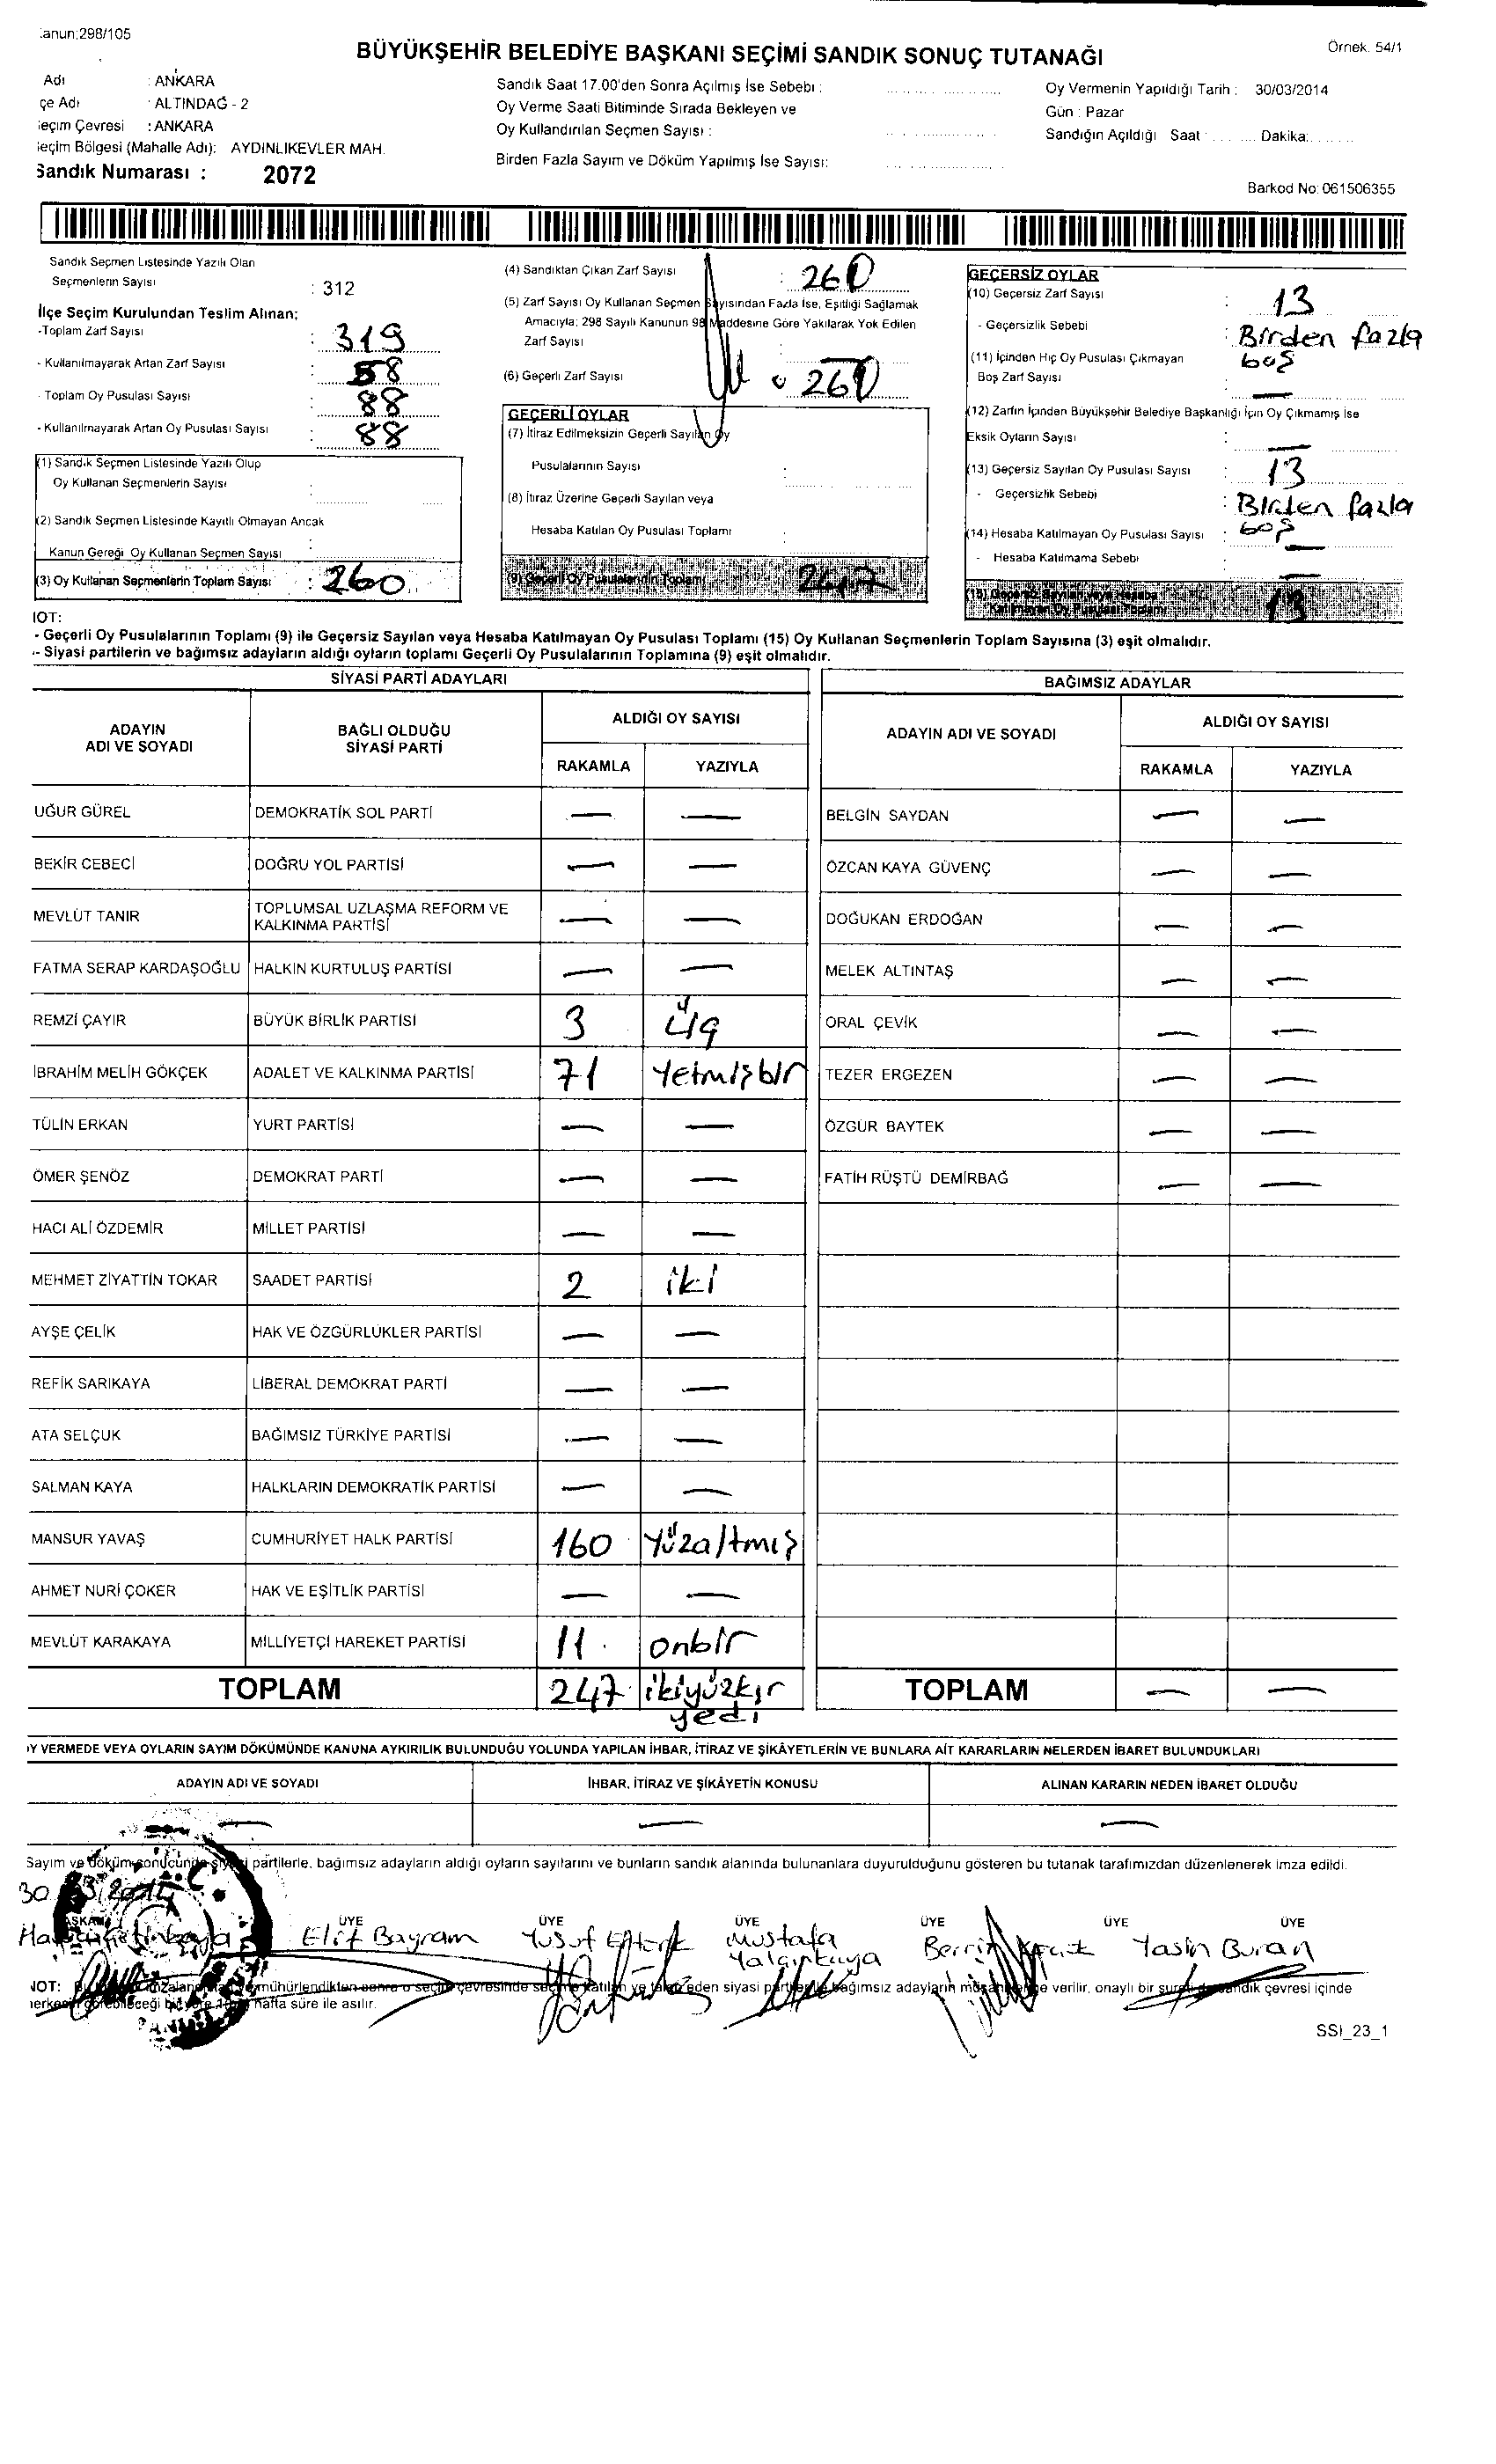 :anun:298/105
BÜYÜKŞEHİR BELEDİYE BAŞKANI SEÇİMİ SANDIK SONUÇ TUTANAĞI
Örnek. 54/1
Adı : ANKARA
çe Adı : ALTINDAĞ - 2
eçim Çevresi : ANKARA
eçim Bölgesi (Mahalle Adı): AYDINLIKEVLER MAH.
Sandık Numarası : 2072
Sandık Saat 17.00'den Sonra Açılmış İse Sebebi :
Oy Verme Saati Bitiminde Sırada Bekleyen ve
Oy Kullandırılan Seçmen Sayısı :
Birden Fazla Sayım ve Döküm Yapılmış İse Sayısı:
Oy Vermenin Yapıldığı Tarih : 30/03/2014
Gün : Pazar
Sandığın Açıldığı Saat : ........ Dakika: ........
Barkod No: 061506355
Sandık Seçmen Listesinde Yazılı Olan
Seçmenlerin Sayısı : 312
İlçe Seçim Kurulundan Teslim Alınan:
-Toplam Zarf Sayısı : 319
- Kullanılmayarak Artan Zarf Sayısı : 58
- Toplam Oy Pusulası Sayısı : 88
- Kullanılmayarak Artan Oy Pusulası Sayısı : 88
(1) Sandık Seçmen Listesinde Yazılı Olup
Oy Kullanan Seçmenlerin Sayısı :
(2) Sandık Seçmen Listesinde Kayıtlı Olmayan Ancak
Kanun Gereği Oy Kullanan Seçmen Sayısı :
(3) Oy Kullanan Seçmenlerin Toplam Sayısı : 260
(4) Sandıktan Çıkan Zarf Sayısı : 260
(5) Zarf Sayısı Oy Kullanan Seçmen Sayısından Fazla İse, Eşitliği Sağlamak
Amacıyla; 298 Sayılı Kanunun 98 Maddesine Göre Yakılarak Yok Edilen
Zarf Sayısı : —
(6) Geçerli Zarf Sayısı : 260
GEÇERLİ OYLAR
(7) İtiraz Edilmeksizin Geçerli Sayılan Oy
Pusulalarının Sayısı :
(8) İtiraz Üzerine Geçerli Sayılan veya
Hesaba Katılan Oy Pusulası Toplamı :
(9) Geçerli Oy Pusulalarının Toplamı 247
GEÇERSİZ OYLAR
(10) Geçersiz Zarf Sayısı : 13
- Geçersizlik Sebebi : Birden fazla
boş
(11) İçinden Hiç Oy Pusulası Çıkmayan
Boş Zarf Sayısı : —
(12) Zarfın İçinden Büyükşehir Belediye Başkanlığı İçin Oy Çıkmamış İse
Eksik Oyların Sayısı : —
(13) Geçersiz Sayılan Oy Pusulası Sayısı : 13
- Geçersizlik Sebebi : Birden fazla
boş
(14) Hesaba Katılmayan Oy Pusulası Sayısı : —
- Hesaba Katılmama Sebebi : —
(15) Geçersiz Sayılan veya Hesaba
Katılmayan Oy Pusulası Toplamı 13
IOT:
- Geçerli Oy Pusulalarının Toplamı (9) ile Geçersiz Sayılan veya Hesaba Katılmayan Oy Pusulası Toplamı (15) Oy Kullanan Seçmenlerin Toplam Sayısına (3) eşit olmalıdır.
- Siyasi partilerin ve bağımsız adayların aldığı oyların toplamı Geçerli Oy Pusulalarının Toplamına (9) eşit olmalıdır.
SİYASİ PARTİ ADAYLARI
ADAYIN ADI VE SOYADI
BAĞLI OLDUĞU SİYASİ PARTİ
ALDIĞI OY SAYISI
RAKAMLA YAZIYLA
UĞUR GÜREL DEMOKRATİK SOL PARTİ — —
BEKİR CEBECİ DOĞRU YOL PARTİSİ — —
MEVLÜT TANIR TOPLUMSAL UZLAŞMA REFORM VE KALKINMA PARTİSİ — —
FATMA SERAP KARDAŞOĞLU HALKIN KURTULUŞ PARTİSİ — —
REMZİ ÇAYIR BÜYÜK BİRLİK PARTİSİ 3 üç
İBRAHİM MELİH GÖKÇEK ADALET VE KALKINMA PARTİSİ 71 Yetmişbir
TÜLİN ERKAN YURT PARTİSİ — —
ÖMER ŞENÖZ DEMOKRAT PARTİ — —
HACI ALİ ÖZDEMİR MİLLET PARTİSİ — —
MEHMET ZİYATTİN TOKAR SAADET PARTİSİ 2 iki
AYŞE ÇELİK HAK VE ÖZGÜRLÜKLER PARTİSİ — —
REFİK SARIKAYA LİBERAL DEMOKRAT PARTİ — —
ATA SELÇUK BAĞIMSIZ TÜRKİYE PARTİSİ — —
SALMAN KAYA HALKLARIN DEMOKRATİK PARTİSİ — —
MANSUR YAVAŞ CUMHURİYET HALK PARTİSİ 160 Yüzaltmış
AHMET NURİ ÇOKER HAK VE EŞİTLİK PARTİSİ — —
MEVLÜT KARAKAYA MİLLİYETÇİ HAREKET PARTİSİ 11 onbir
TOPLAM 247 ikiyüzkır
yedi
BAĞIMSIZ ADAYLAR
ADAYIN ADI VE SOYADI
ALDIĞI OY SAYISI
RAKAMLA YAZIYLA
BELGİN SAYDAN — —
ÖZCAN KAYA GÜVENÇ — —
DOĞUKAN ERDOĞAN — —
MELEK ALTINTAŞ — —
ORAL ÇEVİK — —
TEZER ERGEZEN — —
ÖZGÜR BAYTEK — —
FATİH RÜŞTÜ DEMİRBAĞ — —
TOPLAM — —
IY VERMEDE VEYA OYLARIN SAYIM DÖKÜMÜNDE KANUNA AYKIRILIK BULUNDUĞU YOLUNDA YAPILAN İHBAR, İTİRAZ VE ŞİKÂYETLERİN VE BUNLARA AİT KARARLARIN NELERDEN İBARET BULUNDUKLARI
ADAYIN ADI VE SOYADI İHBAR, İTİRAZ VE ŞİKÂYETİN KONUSU ALINAN KARARIN NEDEN İBARET OLDUĞU
— — —
Sayım ve döküm sonucunda siyasi partilerle, bağımsız adayların aldığı oyların sayılarını ve bunların sandık alanında bulunanlara duyurulduğunu gösteren bu tutanak tarafımızdan düzenlenerek imza edildi.
30
ÜYE ÜYE ÜYE ÜYE ÜYE ÜYE
Elif Bayram Yusuf Mustafa Yalçınkaya Berrin Yasin Buran
NOT: mühürlendikten sonra o seçim çevresinde seçime katılan ve talep eden siyasi partilerle bağımsız adayların verilir, onaylı bir sureti de sandık çevresi içinde
hafta süre ile asılır.
SSI_23_1